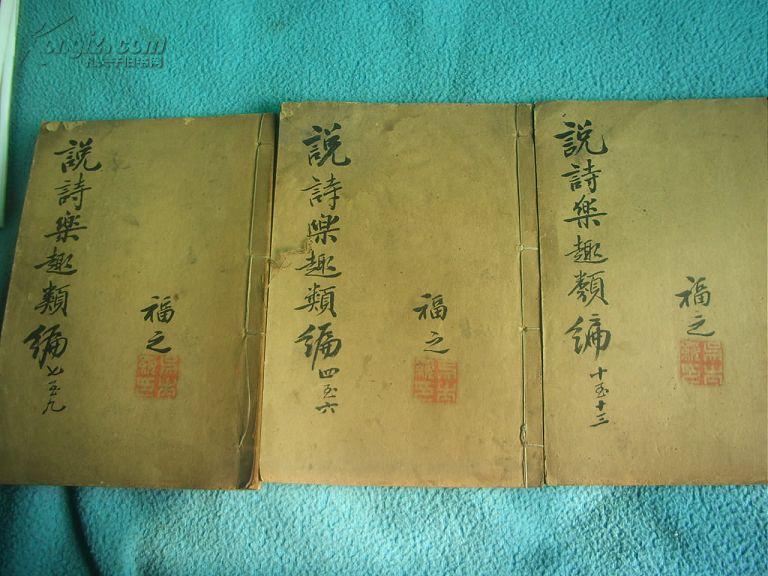 kongfz.com
孔夫子旧书网
説詩樂趣類編 七至九
福之
説詩樂趣類編 四至六
福之
説詩樂趣類編 十至十三
福之